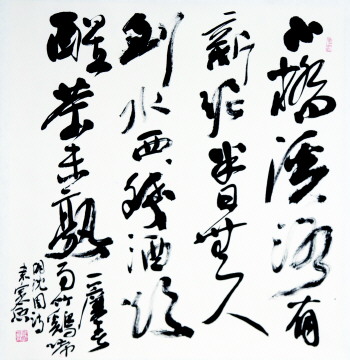 小橋溪路有
新泥半日無人
到水西殘酒欲
醒茶未熟一簾春
雨竹鷄啼
明沈周詩